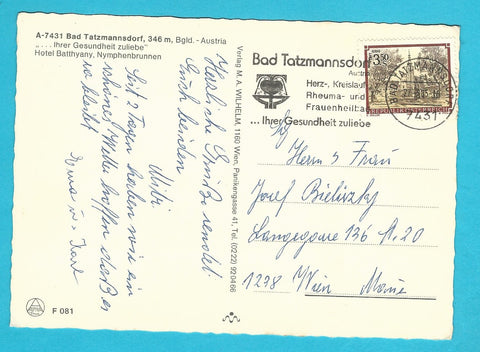 A-7431 Bad Tatzmannsdorf, 346 m, Bgld. - Austria
„. . . Ihrer Gesundheit zuliebe"
Hotel Batthyany, Nymphenbrunnen
Herzliche Grüße sendet
Euch beiden
Mitzi
Seit 2 Tagen haben wir ein
schönes Wetter hoffen daß es
so bleibt
Erna u. Karl
Verlag M. A. WILHELM 1160 Wien, Panikengasse 41, Tel. (0222) 92 04 66
Bad Tatzmannsdorf
Austria
Herz-, Kreislauf
Rheuma- und
Frauenheilba
... Ihrer Gesundheit zuliebe
3.50
REPUBLIK ÖSTERREICH
TATZMANNSDORF
7431
Herrn & Frau
Josef
Langegasse 136
1238 Wien
F 081